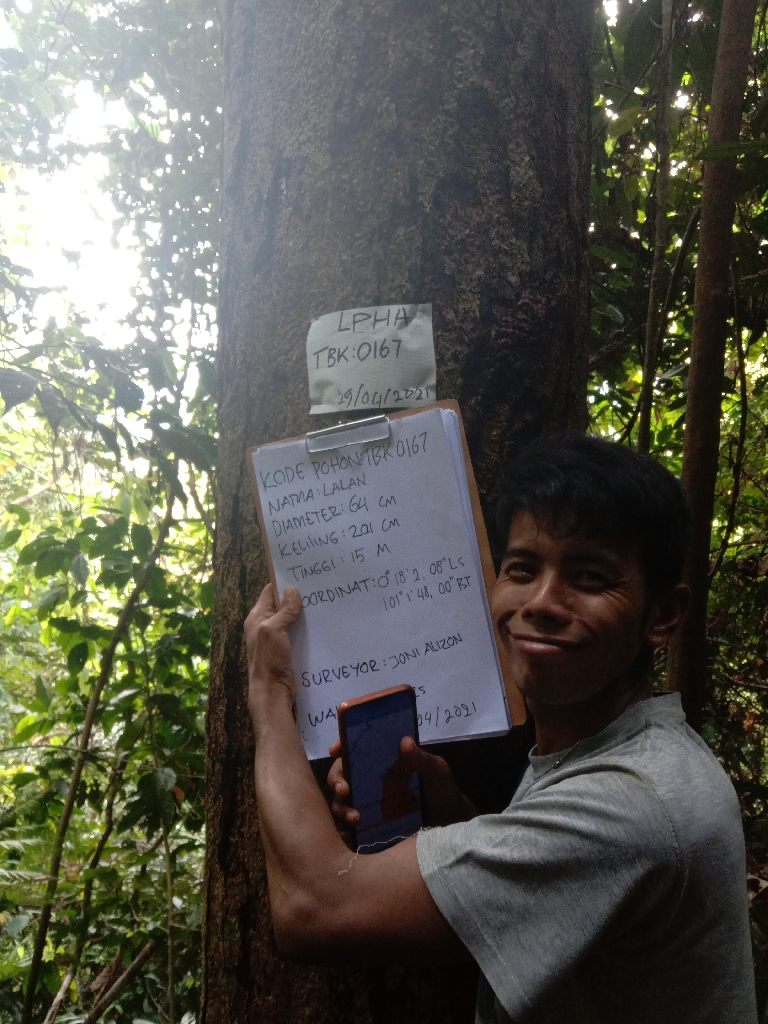 LPHA
TBK:0167
29/04/2021
KODE POHON:TBK0167
NAMA:LALAN
DIAMETER:64 CM
KELILING:201 CM
TINGGI:15 M
OORDINAT:0°18'2,08"LS
101°1'48,00"BT
SURVEYOR:JONI ALIZON
04/2021